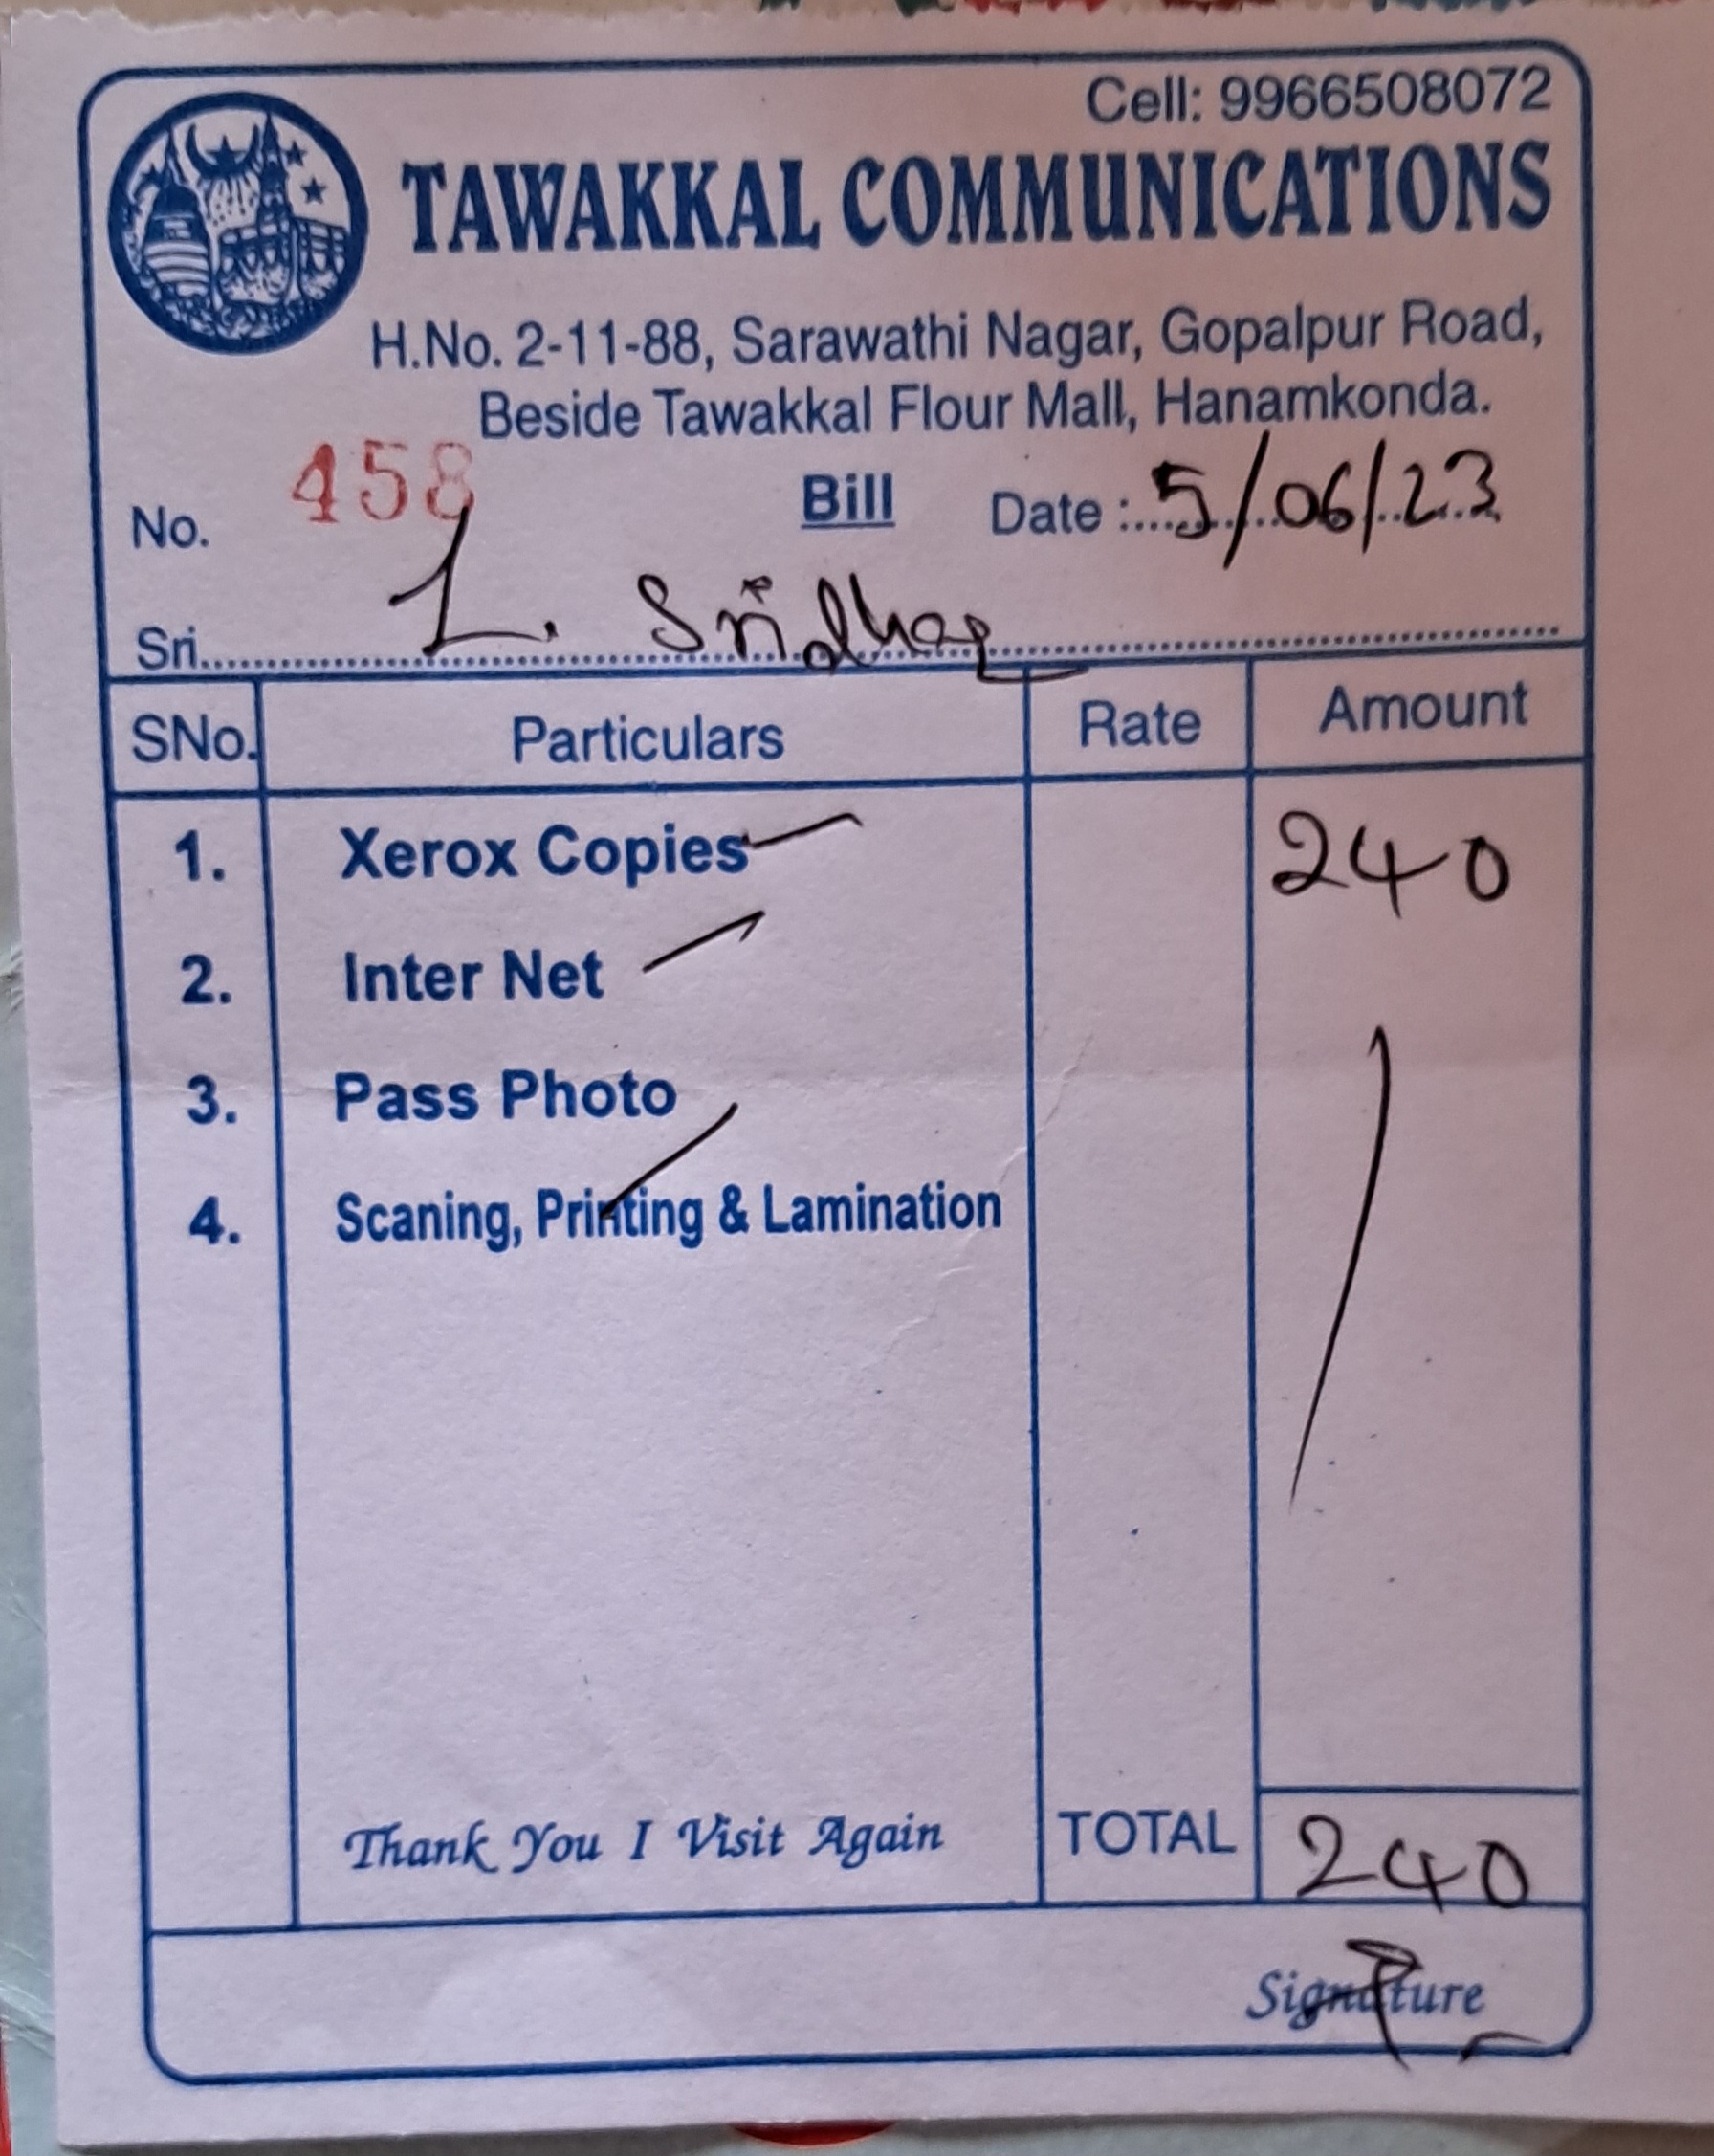 Cell: 9966508072
TAWAKKAL COMMUNICATIONS
H.No. 2-11-88, Sarawathi Nagar, Gopalpur Road,
Beside Tawakkal Flour Mall, Hanamkonda.
No. 458 Bill Date : 5/06/23
Sri. L. Sridhar
SNo. Particulars Rate Amount
1. Xerox Copies 240
2. Inter Net
3. Pass Photo
4. Scaning, Printing & Lamination
Thank You I Visit Again TOTAL 240
Signature